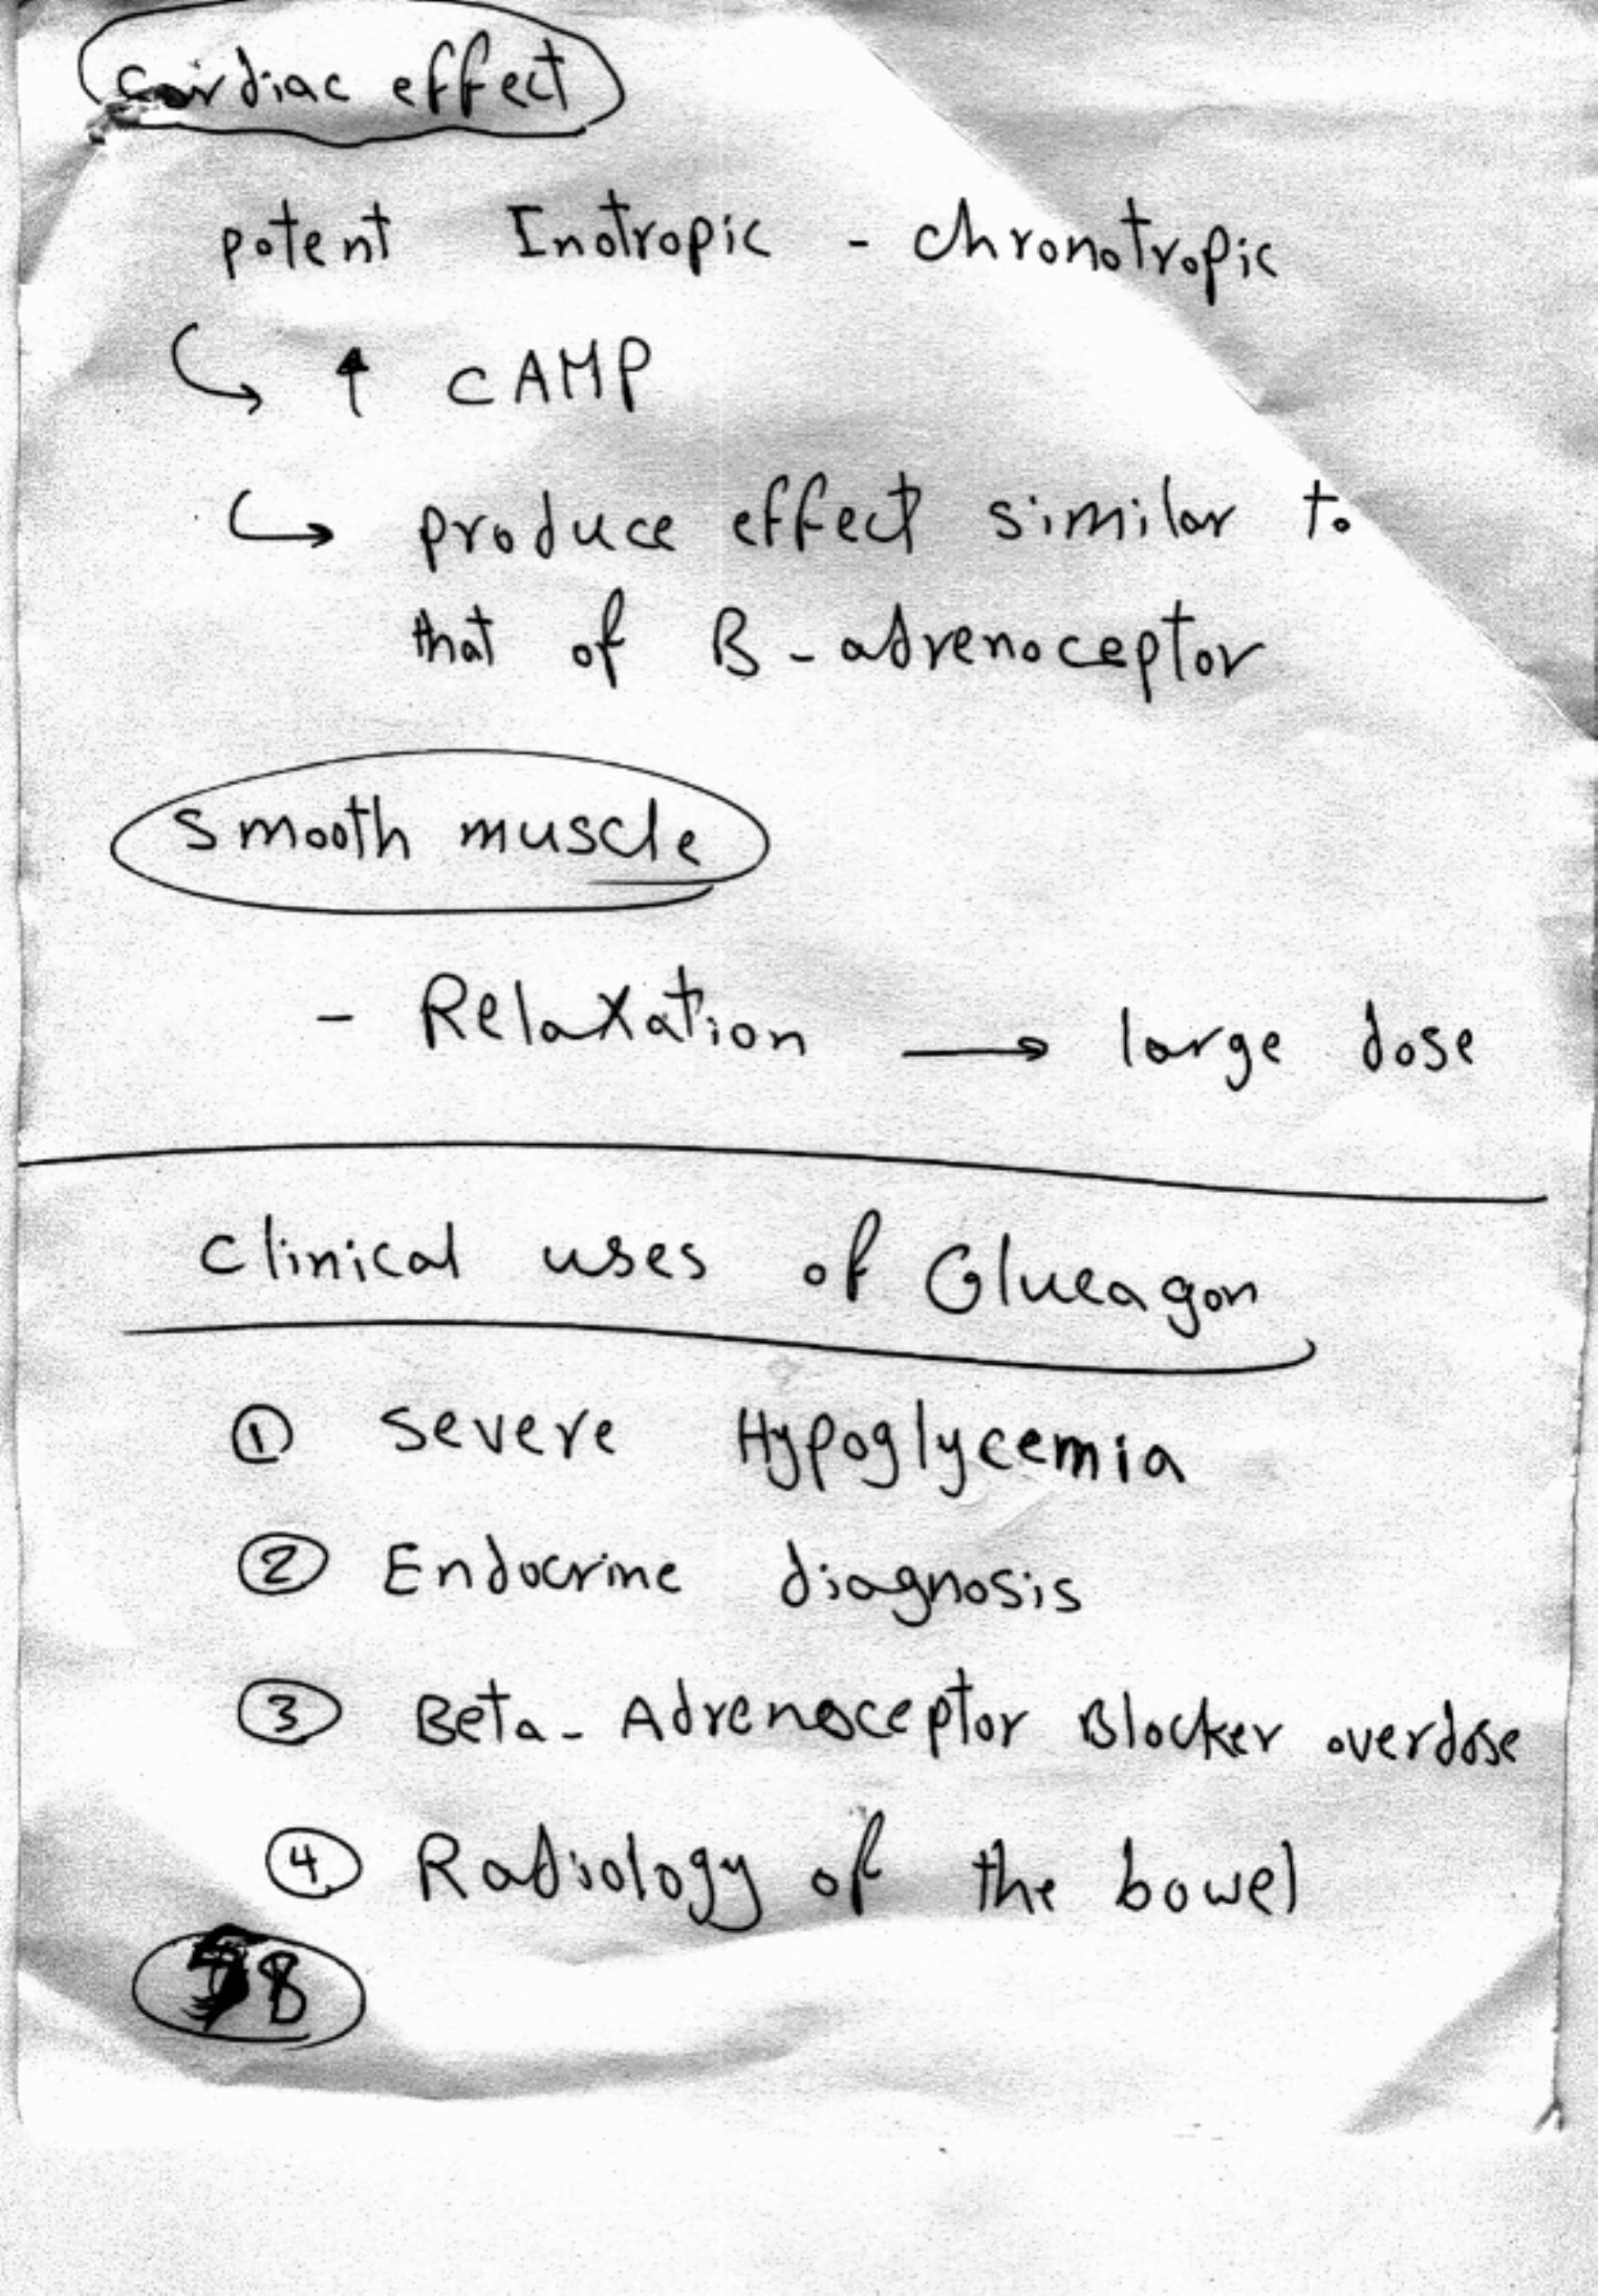 cardiac effect
potent Inotropic - chronotropic
↑ cAMP
produce effect similar to
that of B-adrenoceptor
smooth muscle
- Relaxation → large dose
Clinical uses of Glucagon
① Severe Hypoglycemia
② Endocrine diagnosis
③ Beta-Adrenoceptor Blocker overdose
④ Radiology of the bowel
8